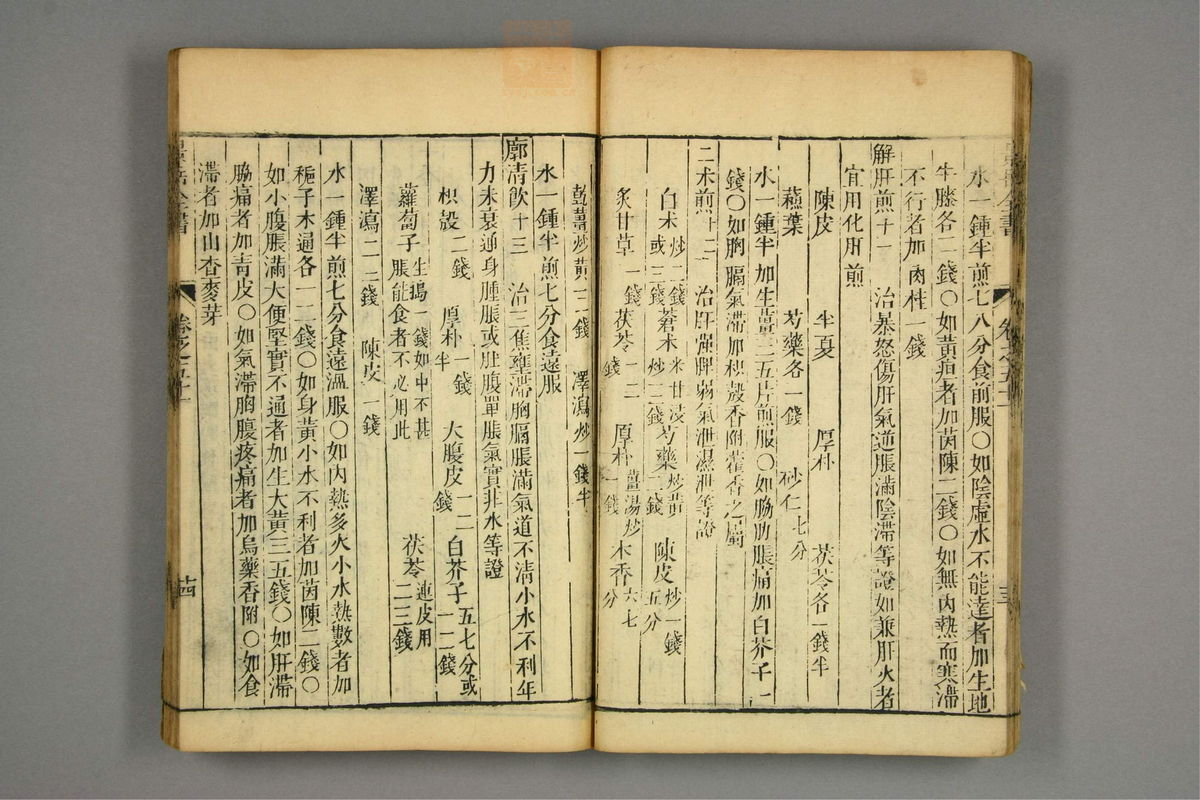 水一鍾半煎七八分食前服〇如陰虛水不能達者加生地
牛膝各二錢〇如黃疸者加茵陳二錢〇如無內熱而寒滯
不行者加肉桂一錢
解肝煎十一 治暴怒傷肝氣逆脹滿陰滯等證如兼肝火者
宜用化肝煎
陳皮 半夏 厚朴 茯苓各一錢半
蘇葉 芍藥各一錢 砂仁七分
水一鍾半加生薑三五片煎服〇如脇肋脹痛加白芥子一
錢〇如胸膈氣滯加枳殼香附藿香之屬
二朮煎十二 治肝強脾弱氣泄濕泄等證
白朮炒二錢或三錢 蒼朮米甘浸炒一二錢 芍藥炒黃二錢 陳皮炒一錢五分
炙甘草一錢 茯苓一二錢 厚朴薑湯炒一錢 木香六七分
乾薑炒黃一二錢 澤瀉炒一錢半
水一鍾半煎七分食遠服
廓清飲十三 治三焦壅滯胸膈脹滿氣道不清小水不利年
力未衰通身腫脹或肚腹單脹氣實非水等證
枳殼二錢 厚朴一錢半 大腹皮一二錢 白芥子五七分或一二錢
蘿蔔子生搗一錢如中不甚脹能食者不必用此 茯苓連皮用二三錢
澤瀉二三錢 陳皮一錢
水一鍾半煎七分食遠溫服〇如內熱多火小水熱數者加
梔子木通各一二錢〇如身黃小水不利者加茵陳二錢〇
如小腹脹滿大便堅實不通者加生大黃三五錢〇如肝滯
脇痛者加青皮〇如氣滯胸腹疼痛者加烏藥香附〇如食
滯者加山查麥芽
全書 卷之五十一